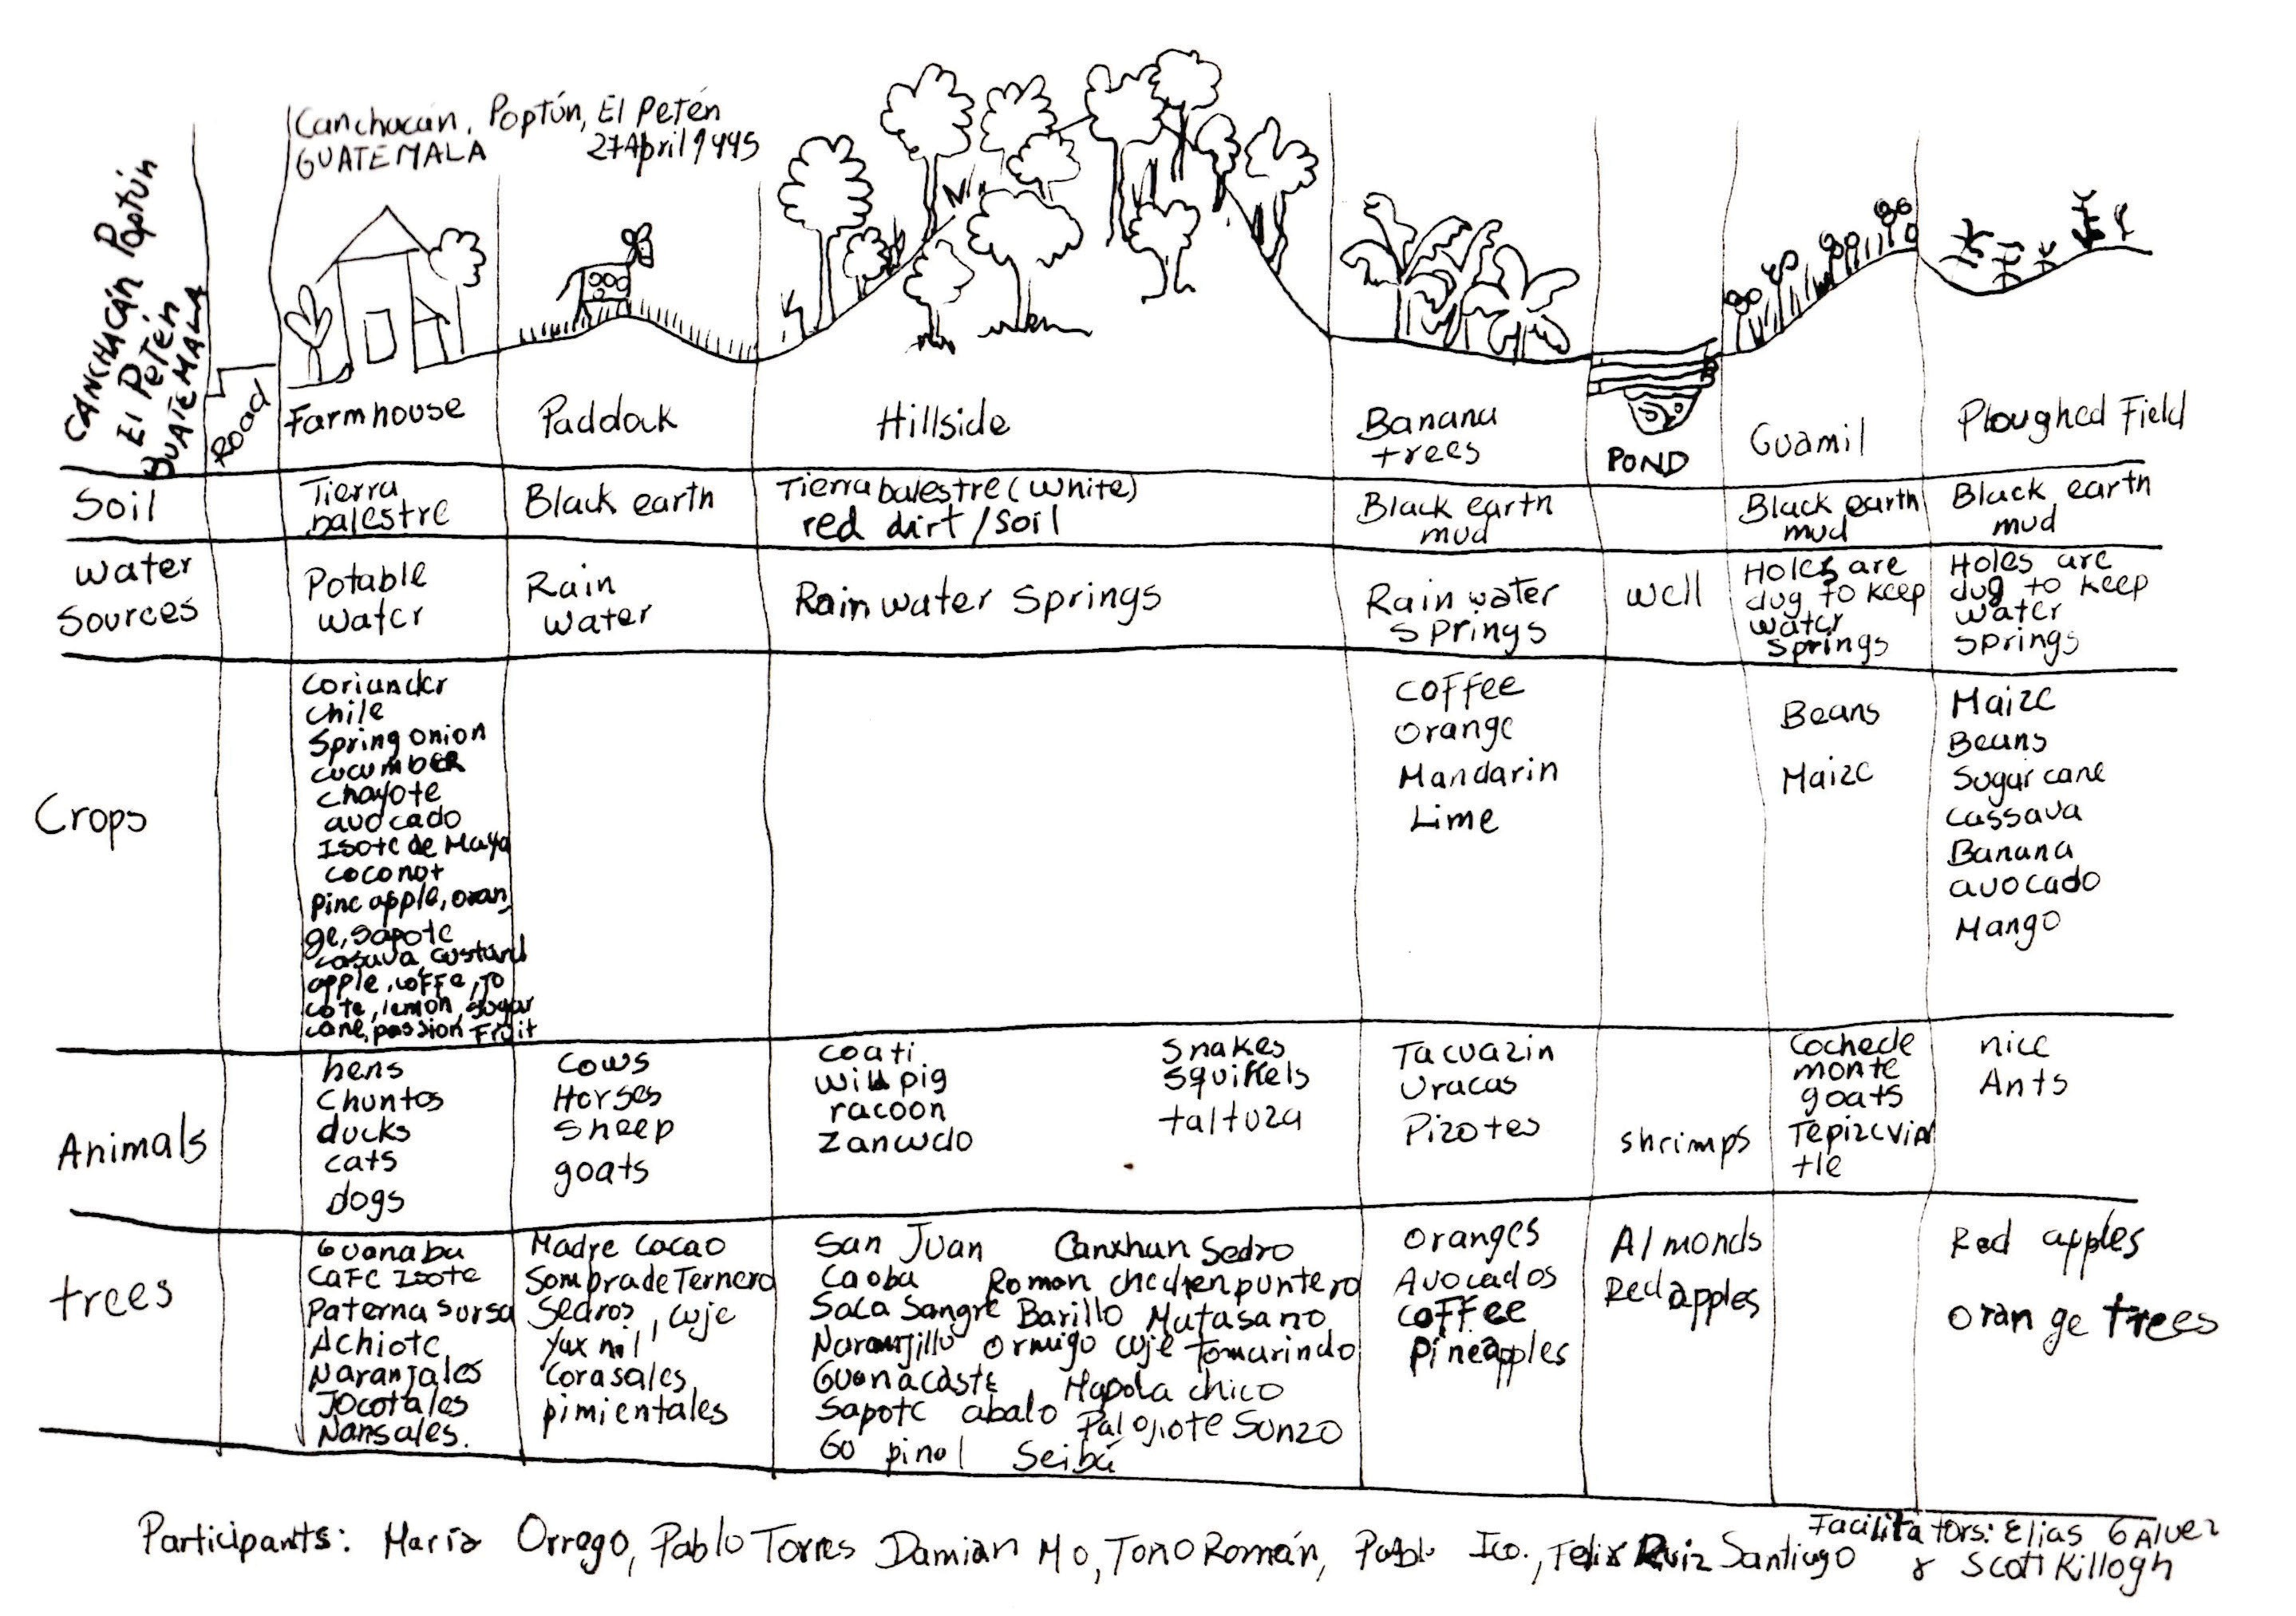 CANCHACÁN Poptún
El Petén
GUATEMALA
Canchacán, Poptún, El Petén
GUATEMALA 27 April 1995
Road
Farmhouse
Paddock
Hillside
Banana
trees
POND
Guamil
Ploughed Field
Soil
Tierra
balestre
Black earth
Tierra balestre (White)
red dirt / soil
Black earth
mud
Black earth
mud
Black earth
mud
Water
Sources
Potable
water
Rain
water
Rain water Springs
Rain water
springs
well
Holes are
dug to keep
water
springs
Holes are
dug to keep
water
springs
Crops
Coriander
Chile
Spring onion
cucumber
chayote
avocado
Isote de Maya
coconot
Pine apple, oran
ge, sapote
casava, custard
apple, coffe, jo
cote, lemon, sugar
cane, passion Fruit
Coffee
Orange
Mandarin
Lime
Beans
Maize
Maize
Beans
Sugar cane
Cassava
Banana
avocado
Mango
Animals
hens
Chuntos
ducks
cats
dogs
Cows
Horses
Sheep
goats
coati
wild pig
racoon
Zancudo
Snakes
squirrels
taltuza
Tacuazin
Uracas
Pizotes
shrimps
Cochede
monte
goats
Tepizcuin
tle
nice
Ants
trees
Guanaba
Cafe Isote
Paterna sursa
Achiote
Naranjales
Jocotales
Nansales.
Madre Cacao
Sompra de Ternero
Sedros, cuje
Yax nil
Corasales
pimientales
San Juan Canxhan Sedro
Caoba Roman chechen puntero
Saca Sangre Barillo Matasano
Naranjillo ormigo cuje tamarindo
Guanacaste Mapola chico
Sapote abalo Palojiote Sunzo
Go pinol Seibá
Oranges
Avocados
coffee
Pineapples
Almonds
Red apples
Red apples
Orange trees
Participants: María Orrego, Pablo Torres Damian Mo, Toño Román, Pablo Ico., Felix Ruiz Santiago
Facilitators: Elias GAlvez
& Scott Killogh